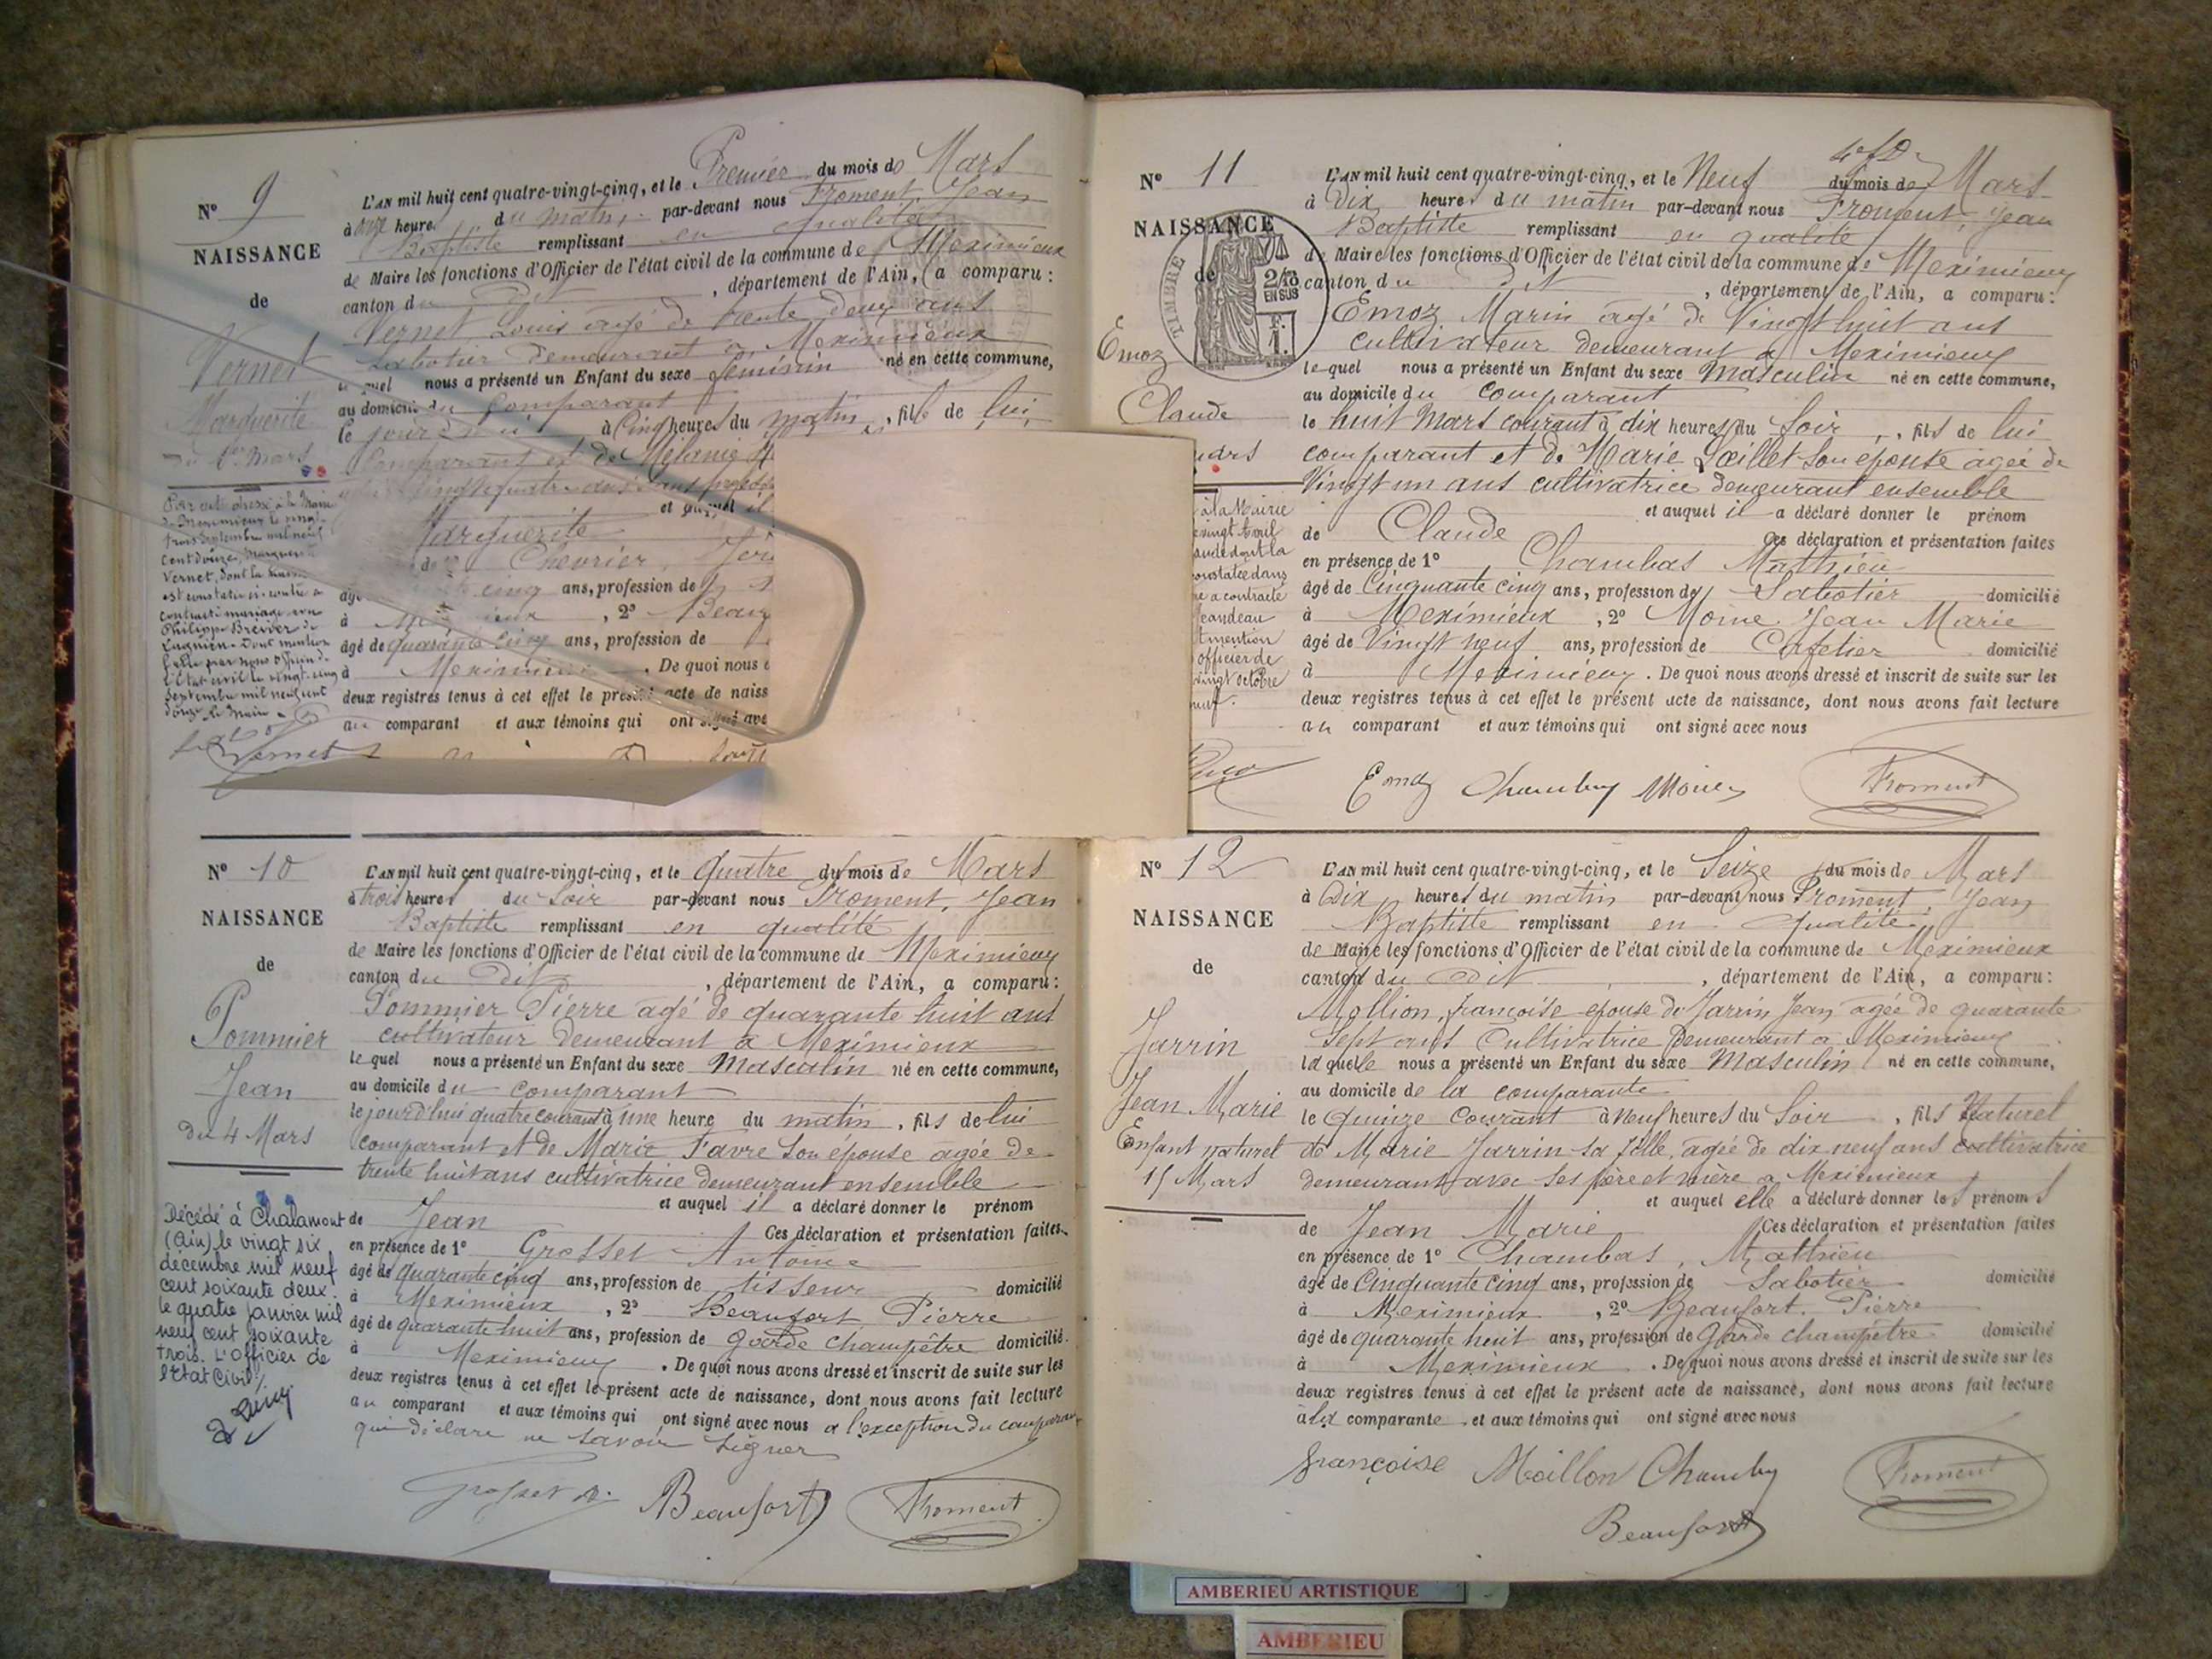 N° 9
NAISSANCE
de
Vernet
Marguerite
du 1er Mars
L'AN mil huit cent quatre-vingt-cinq, et le Premier du mois de Mars
à onze heures du matin, par-devant nous Froment, Jean
Baptiste remplissant en qualité
de Maire les fonctions d'Officier de l'état civil de la commune de Meximieux
canton du dit, département de l'Ain, a comparu :
Vernet Louis agé de trente deux ans
Sabotier demeurant à Meximieux
le quel nous a présenté un Enfant du sexe féminin né en cette commune,
au domicile du Comparant
le jourd'hui à Cinq heures du matin, fille de lui
Comparant et de Mélanie
vingt quatre ans sans
et auquel il
Marguerite
de Chevrier
cinq ans, profession de
à , 2° Beau
âgé de quarante cinq ans, profession de
à Meximieux. De quoi nous
deux registres tenus à cet effet le présent acte de naiss
au comparant et aux témoins qui ont signé ave
Par acte dressé à la Mairie
de Meximieux le vingt-
trois Septembre mil neuf
cent douze, Marguerite
Vernet, dont la
est constatée ci-contre a
contracté mariage avec
Philippe Brévier de
Lagnieu. Dont mention
faite par nous Officier de
l'Etat civil le vingt-cinq
Septembre mil neuf cent
douze. Le Maire
Vernet
N° 10
NAISSANCE
de
Pommier
Jean
du 4 Mars
L'AN mil huit cent quatre-vingt-cinq, et le Quatre du mois de Mars
à trois heures du Soir par-devant nous Froment, Jean
Baptiste remplissant en qualité
de Maire les fonctions d'Officier de l'état civil de la commune de Meximieux
canton du Dit, département de l'Ain, a comparu :
Pommier Pierre agé de quarante huit ans
cultivateur demeurant à Meximieux
le quel nous a présenté un Enfant du sexe Masculin né en cette commune,
au domicile du comparant
le jourd'hui quatre courant à une heure du matin, fils de lui
comparant et de Marie Favre son épouse agée de
trente huit ans cultivatrice demeurant ensemble
et auquel il a déclaré donner le prénom
de Jean Ces déclaration et présentation faites
en présence de 1° Grosset Antoine
âgé de quarante cinq ans, profession de tisseur domicilié
à Meximieux, 2° Beaufort Pierre
âgé de quarante huit ans, profession de garde champêtre domicilié
à Meximieux. De quoi nous avons dressé et inscrit de suite sur les
deux registres tenus à cet effet le présent acte de naissance, dont nous avons fait lecture
au comparant et aux témoins qui ont signé avec nous a l'exception du comparant
qui déclare ne savoir signer
Décédé à Chalamont
(Ain) le vingt six
décembre mil neuf
cent soixante deux.
le quatre janvier mil
neuf cent soixante
trois. L'Officier de
l'Etat Civil,
Grosset A. Beaufort Froment
N° 11
NAISSANCE
de
Emoz
Claude
Mars
TIMBRE
2/10
EN SUS
F.
1.
L'AN mil huit cent quatre-vingt-cinq, et le Neuf du mois de Mars
à Dix heures du matin par-devant nous Froment, Jean
Baptiste remplissant en qualité
de Maire les fonctions d'Officier de l'état civil de la commune de Meximieux
canton du dit, département de l'Ain, a comparu :
Emoz Marin agé de Vingt huit ans
Cultivateur demeurant à Meximieux
le quel nous a présenté un Enfant du sexe Masculin né en cette commune,
au domicile du Comparant
le huit Mars courant à dix heures du Soir, fils de lui
comparant et de Marie Œillet son épouse agée de
Vingt un ans cultivatrice demeurant ensemble
et auquel il a déclaré donner le prénom
de Claude Ces déclaration et présentation faites
en présence de 1° Chambas Mathieu
âgé de Cinquante cinq ans, profession de Sabotier domicilié
à Meximieux, 2° Moine Jean Marie
âgé de Vingt neuf ans, profession de Cafetier domicilié
à Meximieux. De quoi nous avons dressé et inscrit de suite sur les
deux registres tenus à cet effet le présent acte de naissance, dont nous avons fait lecture
au comparant et aux témoins qui ont signé avec nous
à la Mairie
vingt Avril
aude dont la
constatée dans
re a contracté
Jeandeau
t mention
officier de
vingt Octobre
neuf.
Emoz Chamby Moine Froment
N° 12
NAISSANCE
de
Jarrin
Jean Marie
Enfant naturel
15 Mars
L'AN mil huit cent quatre-vingt-cinq, et le Seize du mois de Mars
à Dix heures du matin par-devant nous Froment, Jean
Baptiste remplissant en qualité
de Maire les fonctions d'Officier de l'état civil de la commune de Meximieux
canton du dit, département de l'Ain, a comparu :
Mollion, françoise épouse de Jarrin Jean agée de quarante
Sept ans Cultivatrice demeurant à Meximieux
la quelle nous a présenté un Enfant du sexe Masculin né en cette commune,
au domicile de la comparante
le Quinze Courant à Neuf heures du Soir, fils Naturel
de Marie Jarrin sa fille, agée de dix neuf ans cultivatrice
demeurant avec ses père et mère à Meximieux
et auquel elle a déclaré donner les prénoms
de Jean Marie Ces déclaration et présentation faites
en présence de 1° Chambas, Mathieu
âgé de Cinquante cinq ans, profession de Sabotier domicilié
à Meximieux, 2° Beaufort. Pierre
âgé de quarante huit ans, profession de Garde champêtre domicilié
à Meximieux. De quoi nous avons dressé et inscrit de suite sur les
deux registres tenus à cet effet le présent acte de naissance, dont nous avons fait lecture
à la comparante et aux témoins qui ont signé avec nous
françoise Moillon Chamby Froment
Beaufort
AMBERIEU ARTISTIQUE
AMBERIEU